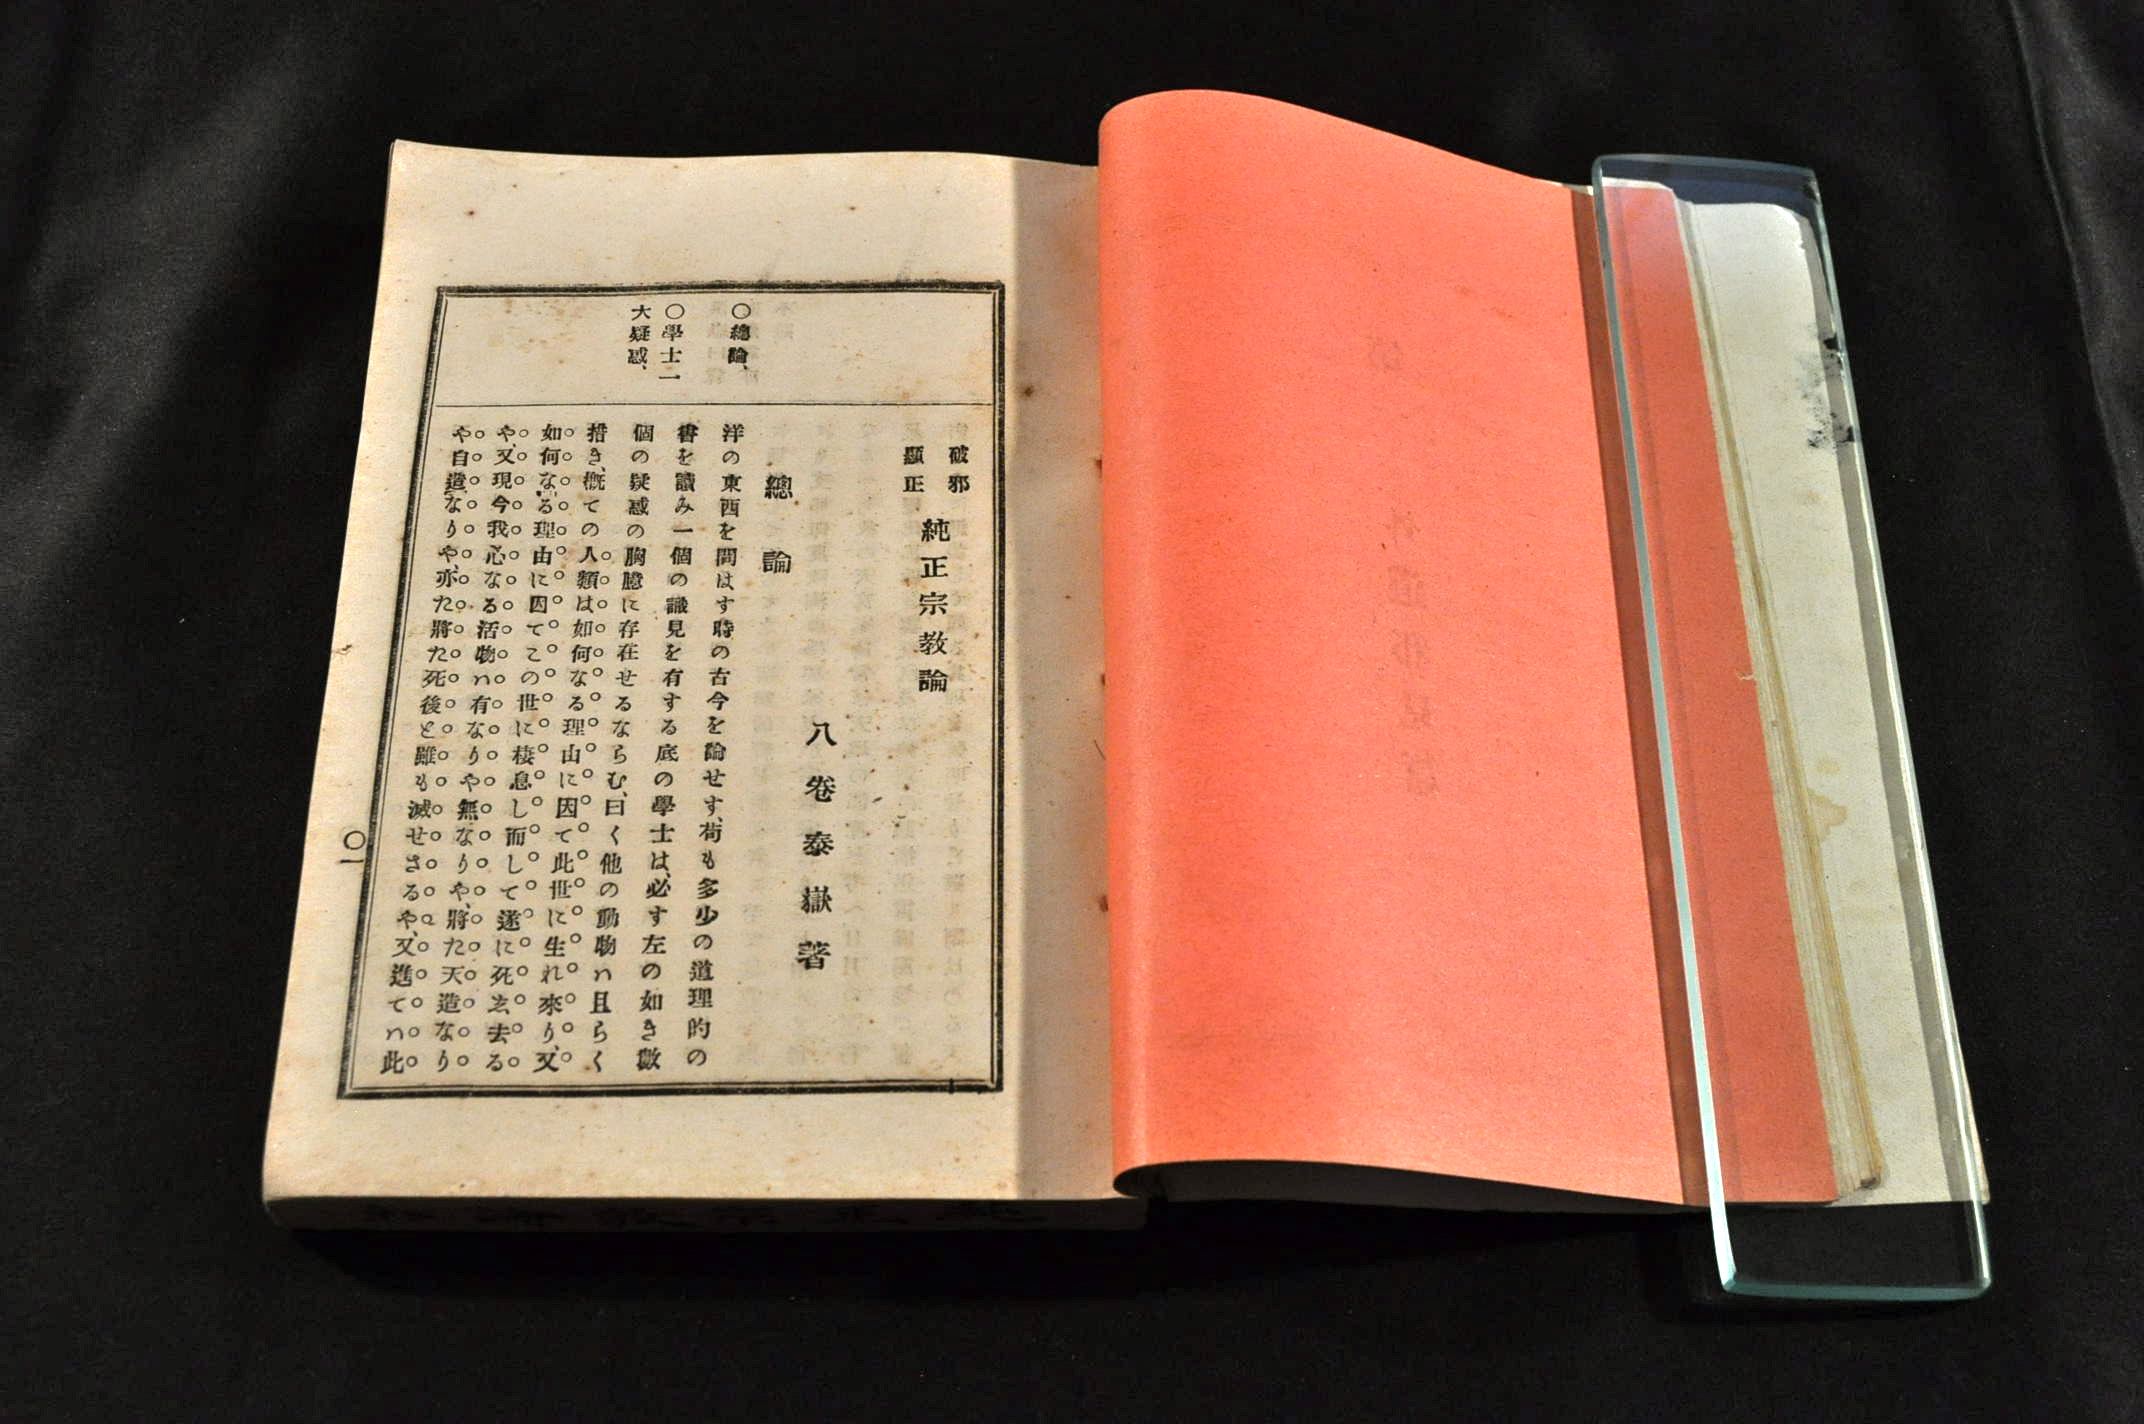 破邪
顯正
純正宗教論
八卷泰嶽著
總論
洋の東西を問はす時の古今を論せす、苟も多少の道理的の
書を讀み一個の識見を有する底の學士は、必す左の如き數
個の疑惑の胸臆に存在せるならむ、曰く他の動物ハ且らく
措き、概ての人類は如何なる理由に因て此世に生れ來り、又
如何なる理由に因てこの世に棲息し而して遂に死去る
や、又現今我心なる活物ハ有なりや無なりや、將た天造なり
や自造なりや、亦た將た死後と雖も滅せさるや、又進てハ此
〇總論、
〇學士一
大疑惑、
一〇